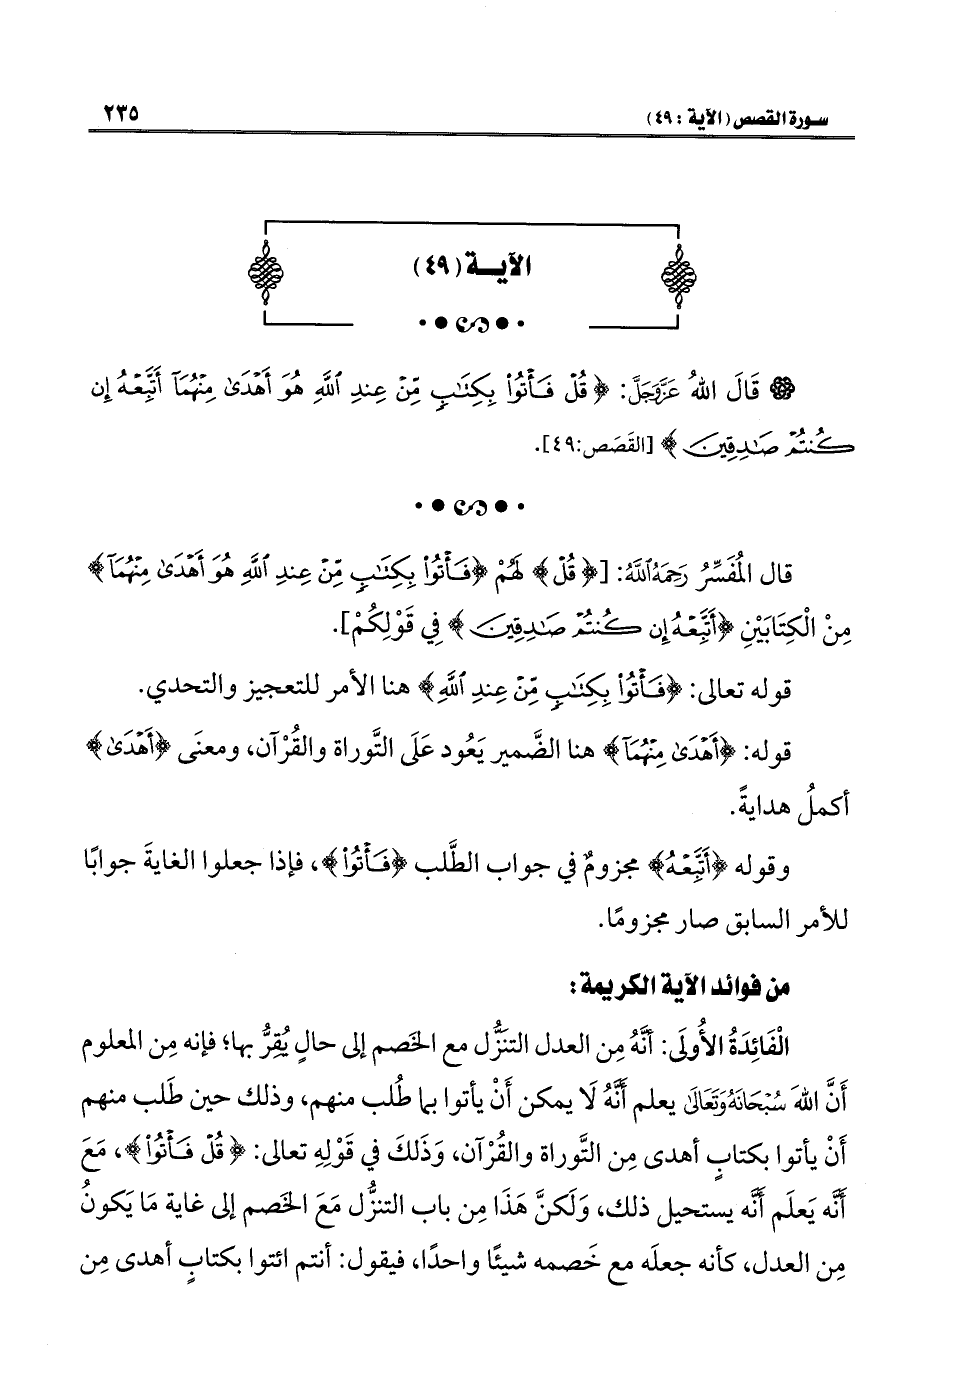 سورة القصص (الآية : ٤٩)
٢٣٥
الآيـــة (٤٩)
قَالَ اللهُ عَزَّوَجَلَّ: ﴿قُلْ فَأْتُوا۟ بِكِتَٰبٍ مِّنْ عِندِ ٱللَّهِ هُوَ أَهْدَىٰ مِنْهُمَآ أَتَّبِعْهُ إِن
كُنتُمْ صَٰدِقِينَ﴾ [القَصَص:٤٩].
قال المُفَسِّرُ رَحِمَهُ اللَّهُ: [﴿قُلْ﴾ لَهُمْ ﴿فَأْتُوا۟ بِكِتَٰبٍ مِّنْ عِندِ ٱللَّهِ هُوَ أَهْدَىٰ مِنْهُمَآ﴾
مِنْ الْكِتَابَيْنِ ﴿أَتَّبِعْهُ إِن كُنتُمْ صَٰدِقِينَ﴾ فِي قَوْلِكُمْ].
قوله تعالى: ﴿فَأْتُوا۟ بِكِتَٰبٍ مِّنْ عِندِ ٱللَّهِ﴾ هنا الأمر للتعجيز والتحدي.
قوله: ﴿أَهْدَىٰ مِنْهُمَآ﴾ هنا الضَّمير يَعُود عَلَى التَّوراة والقُرْآن، ومعنَى ﴿أَهْدَىٰ﴾
أكملُ هدايةً.
وقوله ﴿أَتَّبِعْهُ﴾ مجزومٌ في جواب الطَّلب ﴿فَأْتُوا۟﴾، فإذا جعلوا الغايةَ جوابًا
للأمر السابق صار مجزومًا.
من فوائد الآية الكريمة:
الْفَائِدَةُ الأُولَى: أنَّهُ مِن العدل التنَزُّل مع الخَصم إلى حالٍ يُقِرُّ بها؛ فإنه مِن المعلوم
أنَّ اللهَ سُبْحَانَهُ وَتَعَالَى يعلم أنَّهُ لَا يمكن أنْ يأتوا بما طُلب منهم، وذلك حين طَلب منهم
أنْ يأتوا بكتابٍ أهدى مِن التَّوراة والقُرْآن، وَذَلكَ في قَوْلِهِ تعالى: ﴿قُلْ فَأْتُوا۟﴾، مَعَ
أنَّه يَعلَم أنَّه يستحيل ذلك، وَلَكنَّ هَذَا مِن باب التنزُّل مَعَ الخَصم إلى غاية مَا يَكونُ
مِن العدل، كأنه جعلَه مع خَصمه شيئًا واحدًا، فيقول: أنتم ائتوا بكتابٍ أهدى مِن